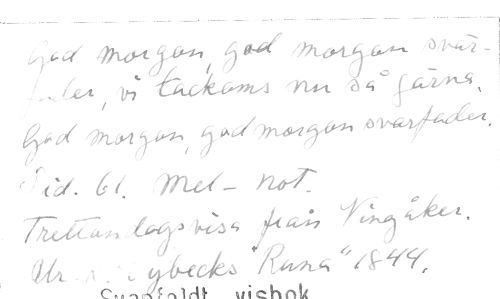 God morgon, god morgon svär-
fader, vi tackoms nu så gärna.
God morgon, god morgon svärfader.
Sid. 61. Mel- not.
Trettondagsvisa från Vingåker.
Ur Dybecks "Runa" 1844.
Svanfeldt visbok